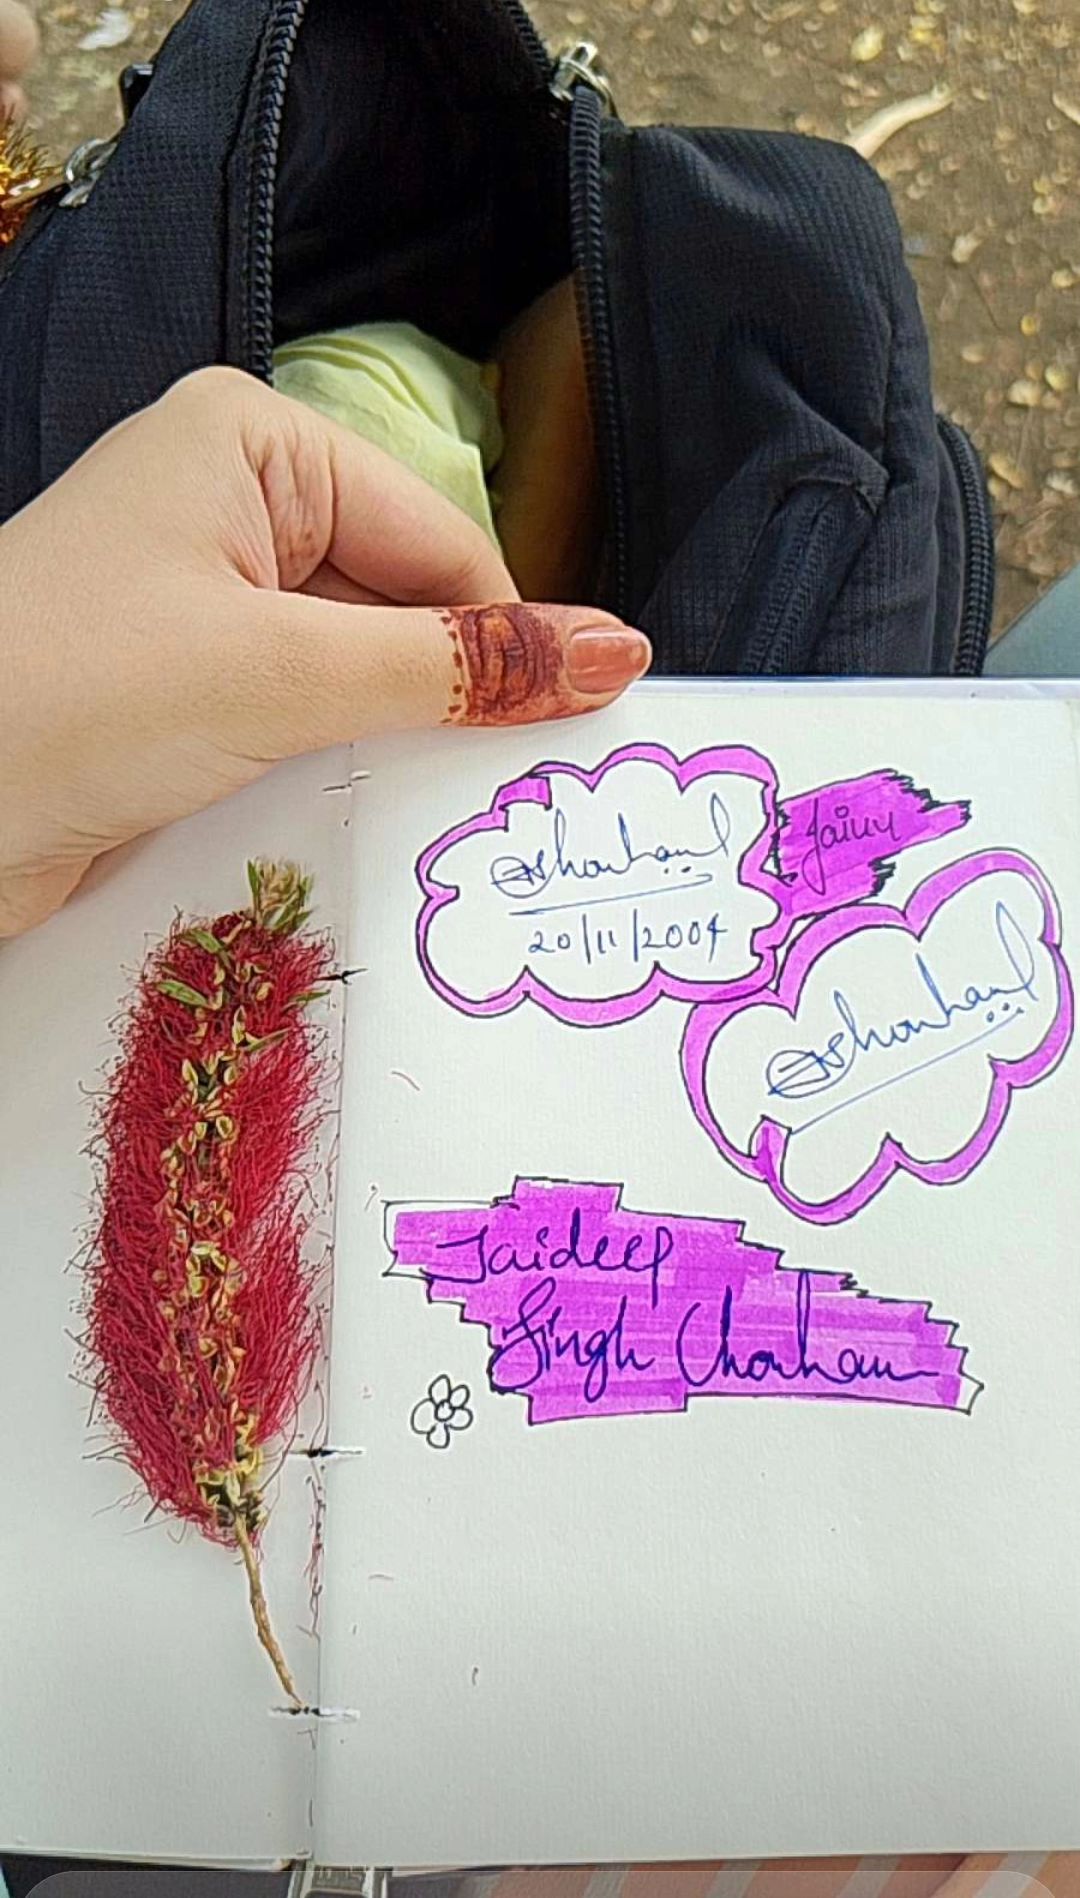 JShouhan
20/11/2004
Jainu
JShouhan
Jaideep
Singh Chouhan